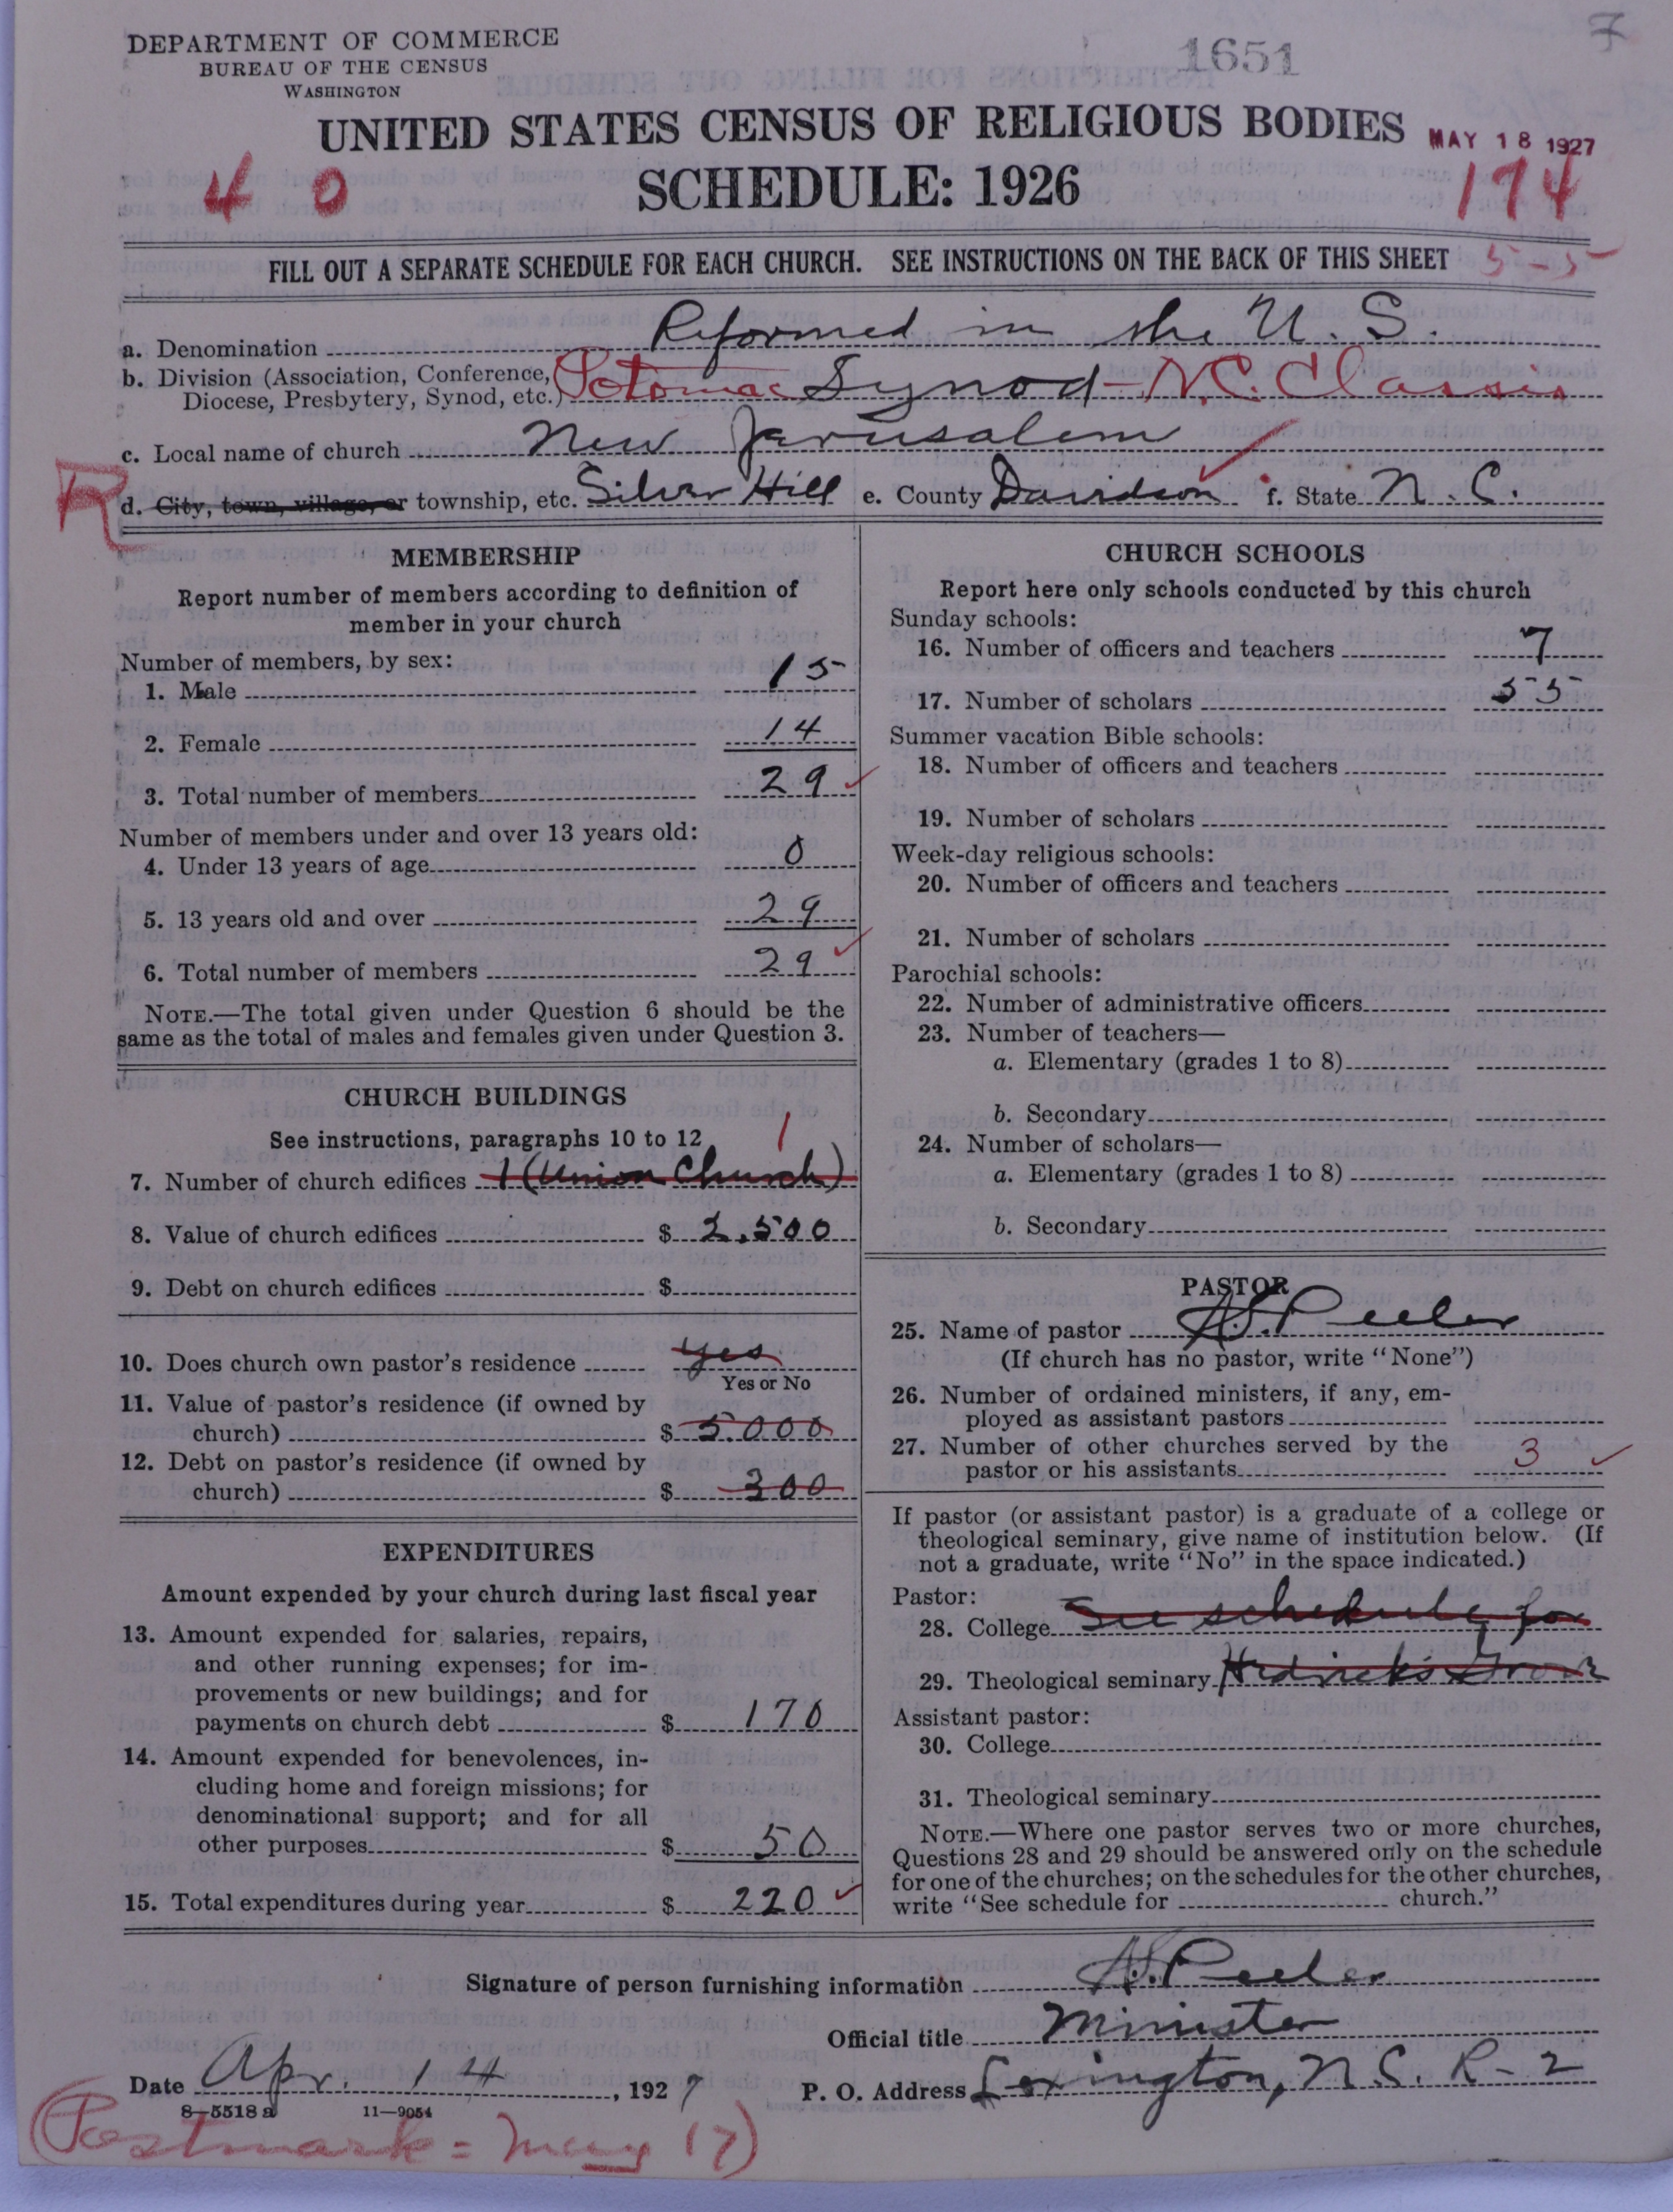 7
DEPARTMENT OF COMMERCE
BUREAU OF THE CENSUS
WASHINGTON
1651
UNITED STATES CENSUS OF RELIGIOUS BODIES
MAY 18 1927
4 0
SCHEDULE: 1926
174
FILL OUT A SEPARATE SCHEDULE FOR EACH CHURCH. SEE INSTRUCTIONS ON THE BACK OF THIS SHEET
5-5
a. Denomination Reformed in the U. S.
b. Division (Association, Conference, Diocese, Presbytery, Synod, etc.) Potomac Synod - N.C. Classis
c. Local name of church New Jerusalem
R
d. City, town, village, or township, etc. Silver Hill e. County Davidson f. State N. C.
MEMBERSHIP
Report number of members according to definition of
member in your church
Number of members, by sex:
1. Male 15
2. Female 14
3. Total number of members 29
Number of members under and over 13 years old:
4. Under 13 years of age 0
5. 13 years old and over 29
6. Total number of members 29
NOTE.—The total given under Question 6 should be the
same as the total of males and females given under Question 3.
CHURCH BUILDINGS
See instructions, paragraphs 10 to 12
1
7. Number of church edifices 1 (Union Church)
8. Value of church edifices $ 2,500
9. Debt on church edifices $
10. Does church own pastor's residence yes
Yes or No
11. Value of pastor's residence (if owned by
church) $ 5000
12. Debt on pastor's residence (if owned by
church) $ 300
EXPENDITURES
Amount expended by your church during last fiscal year
13. Amount expended for salaries, repairs,
and other running expenses; for im-
provements or new buildings; and for
payments on church debt $ 170
14. Amount expended for benevolences, in-
cluding home and foreign missions; for
denominational support; and for all
other purposes $ 50
15. Total expenditures during year $ 220
CHURCH SCHOOLS
Report here only schools conducted by this church
Sunday schools:
16. Number of officers and teachers 7
17. Number of scholars 55
Summer vacation Bible schools:
18. Number of officers and teachers
19. Number of scholars
Week-day religious schools:
20. Number of officers and teachers
21. Number of scholars
Parochial schools:
22. Number of administrative officers
23. Number of teachers—
a. Elementary (grades 1 to 8)
b. Secondary
24. Number of scholars—
a. Elementary (grades 1 to 8)
b. Secondary
PASTOR
25. Name of pastor A.S. Peeler
(If church has no pastor, write "None")
26. Number of ordained ministers, if any, em-
ployed as assistant pastors
27. Number of other churches served by the
pastor or his assistants 3
If pastor (or assistant pastor) is a graduate of a college or
theological seminary, give name of institution below. (If
not a graduate, write "No" in the space indicated.)
Pastor:
28. College See schedule for
29. Theological seminary Hedrick's Grove
Assistant pastor:
30. College
31. Theological seminary
NOTE.—Where one pastor serves two or more churches,
Questions 28 and 29 should be answered only on the schedule
for one of the churches; on the schedules for the other churches,
write "See schedule for church."
Signature of person furnishing information A.S. Peeler
Official title Minister
Date Apr. 14, 1927 P. O. Address Lexington, N.C. R-2
8-5518 a 11-9054
(Postmark = May 17)